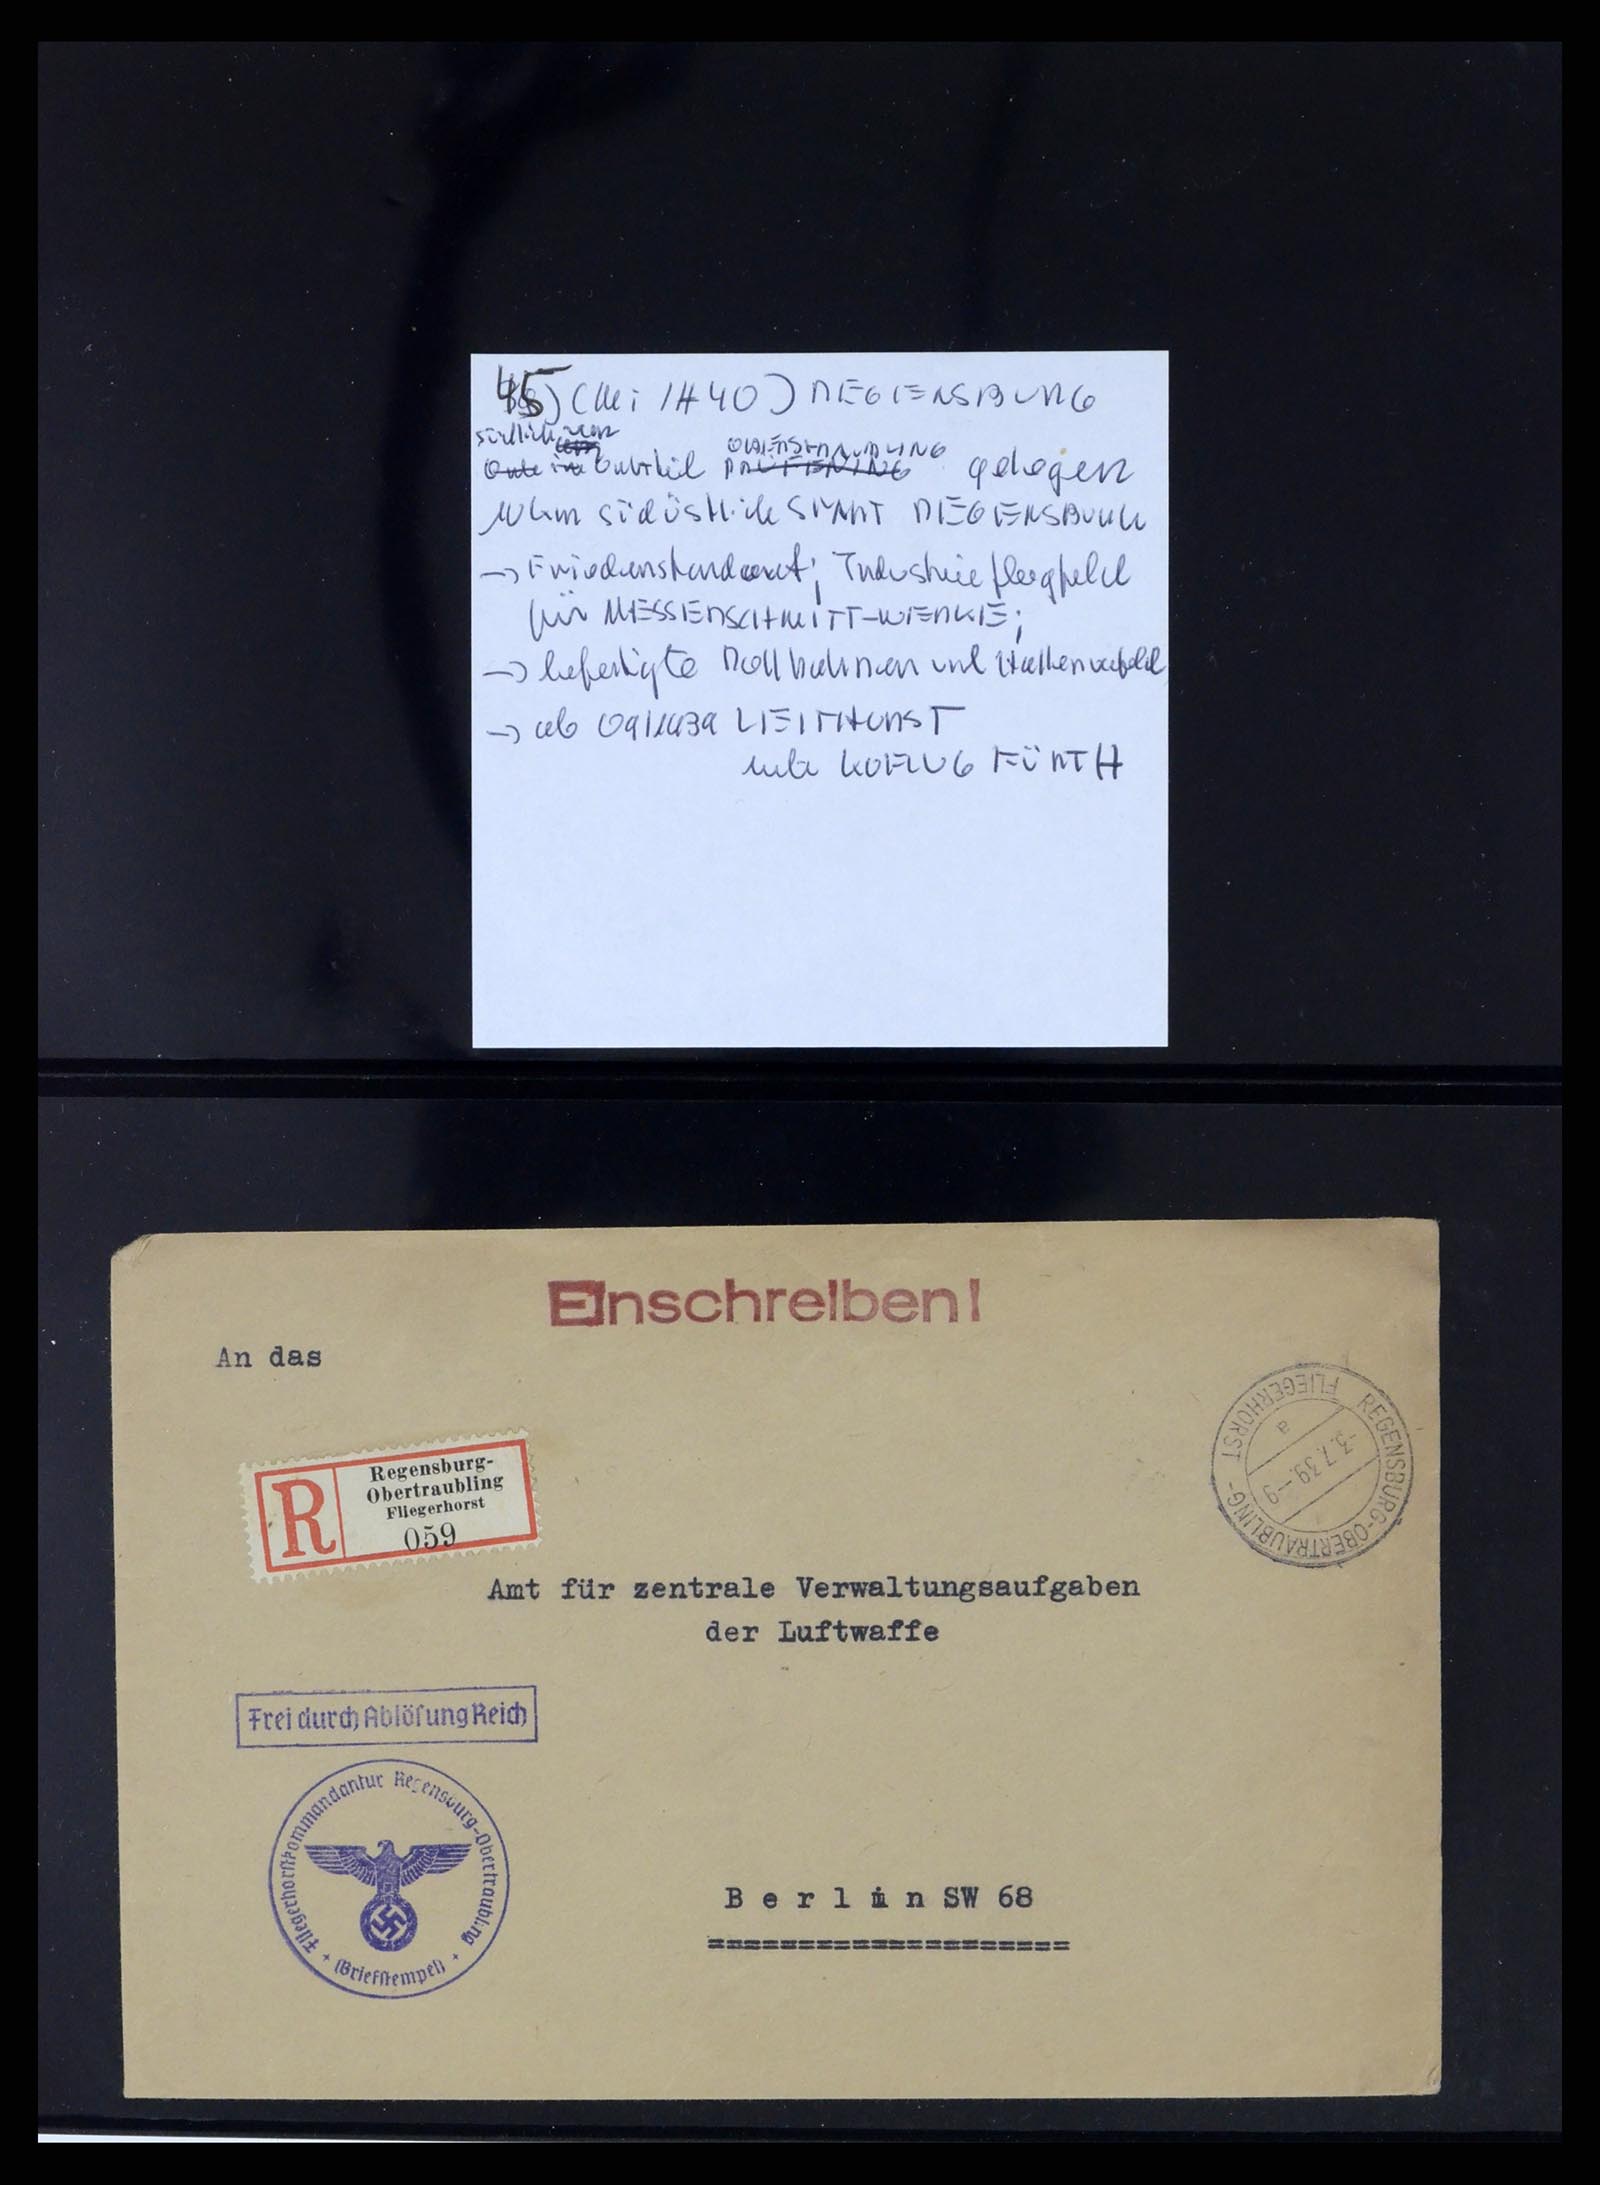 45) (Mi 1H40) REGENSBURG
südlich von
Ortsteil OBERTRAUBLING gelegen
10km südöstlich STADT REGENSBURG
→ Friedensstandort; Industrieflugfeld
für MESSERSCHMITT-WERKE;
→ befestigte Rollbahnen und Hallenvorfeld
→ ab LEITHORST
KOFLUG FÜRTH
Einschreiben!
An das
R
Regensburg-
Obertraubling
Fliegerhorst
059
REGENSBURG-OBERTRAUBLING-
FLIEGERHORST
a
-3.7.39.-9
Amt für zentrale Verwaltungsaufgaben
der Luftwaffe
Frei durch Ablösung Reich
Fliegerhorstkommandantur Regensburg-Obertraubling
+ (Briefstempel) +
Berlin SW 68
====================